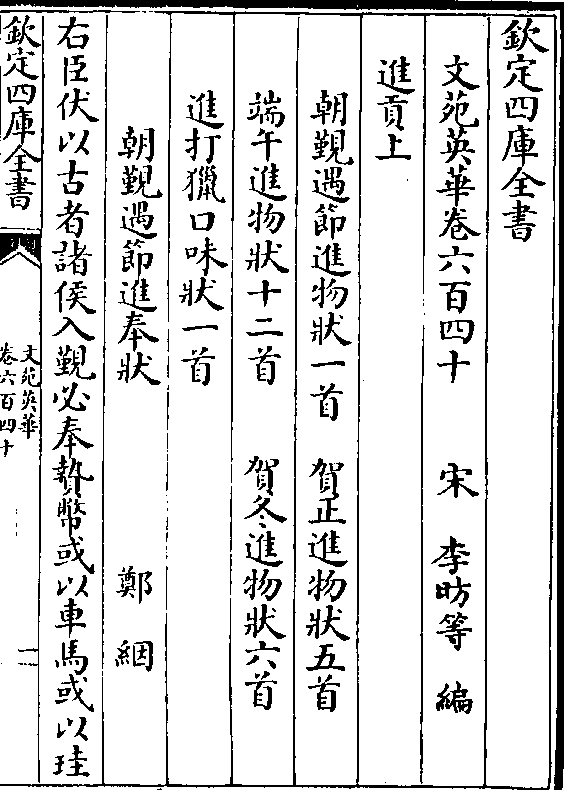 欽定四庫全書
文苑英華卷六百四十　宋　李昉等　編
進貢上
朝覲遇節進物狀一首　賀正進物狀五首
端午進物狀十二首　賀冬進物狀六首
進打獵口味狀一首
朝覲遇節進奉狀　鄭絪
右臣伏以古者諸侯入覲必奉贄幣或以車馬或以珪
欽定四庫全書
文苑英華
卷六百四十
一